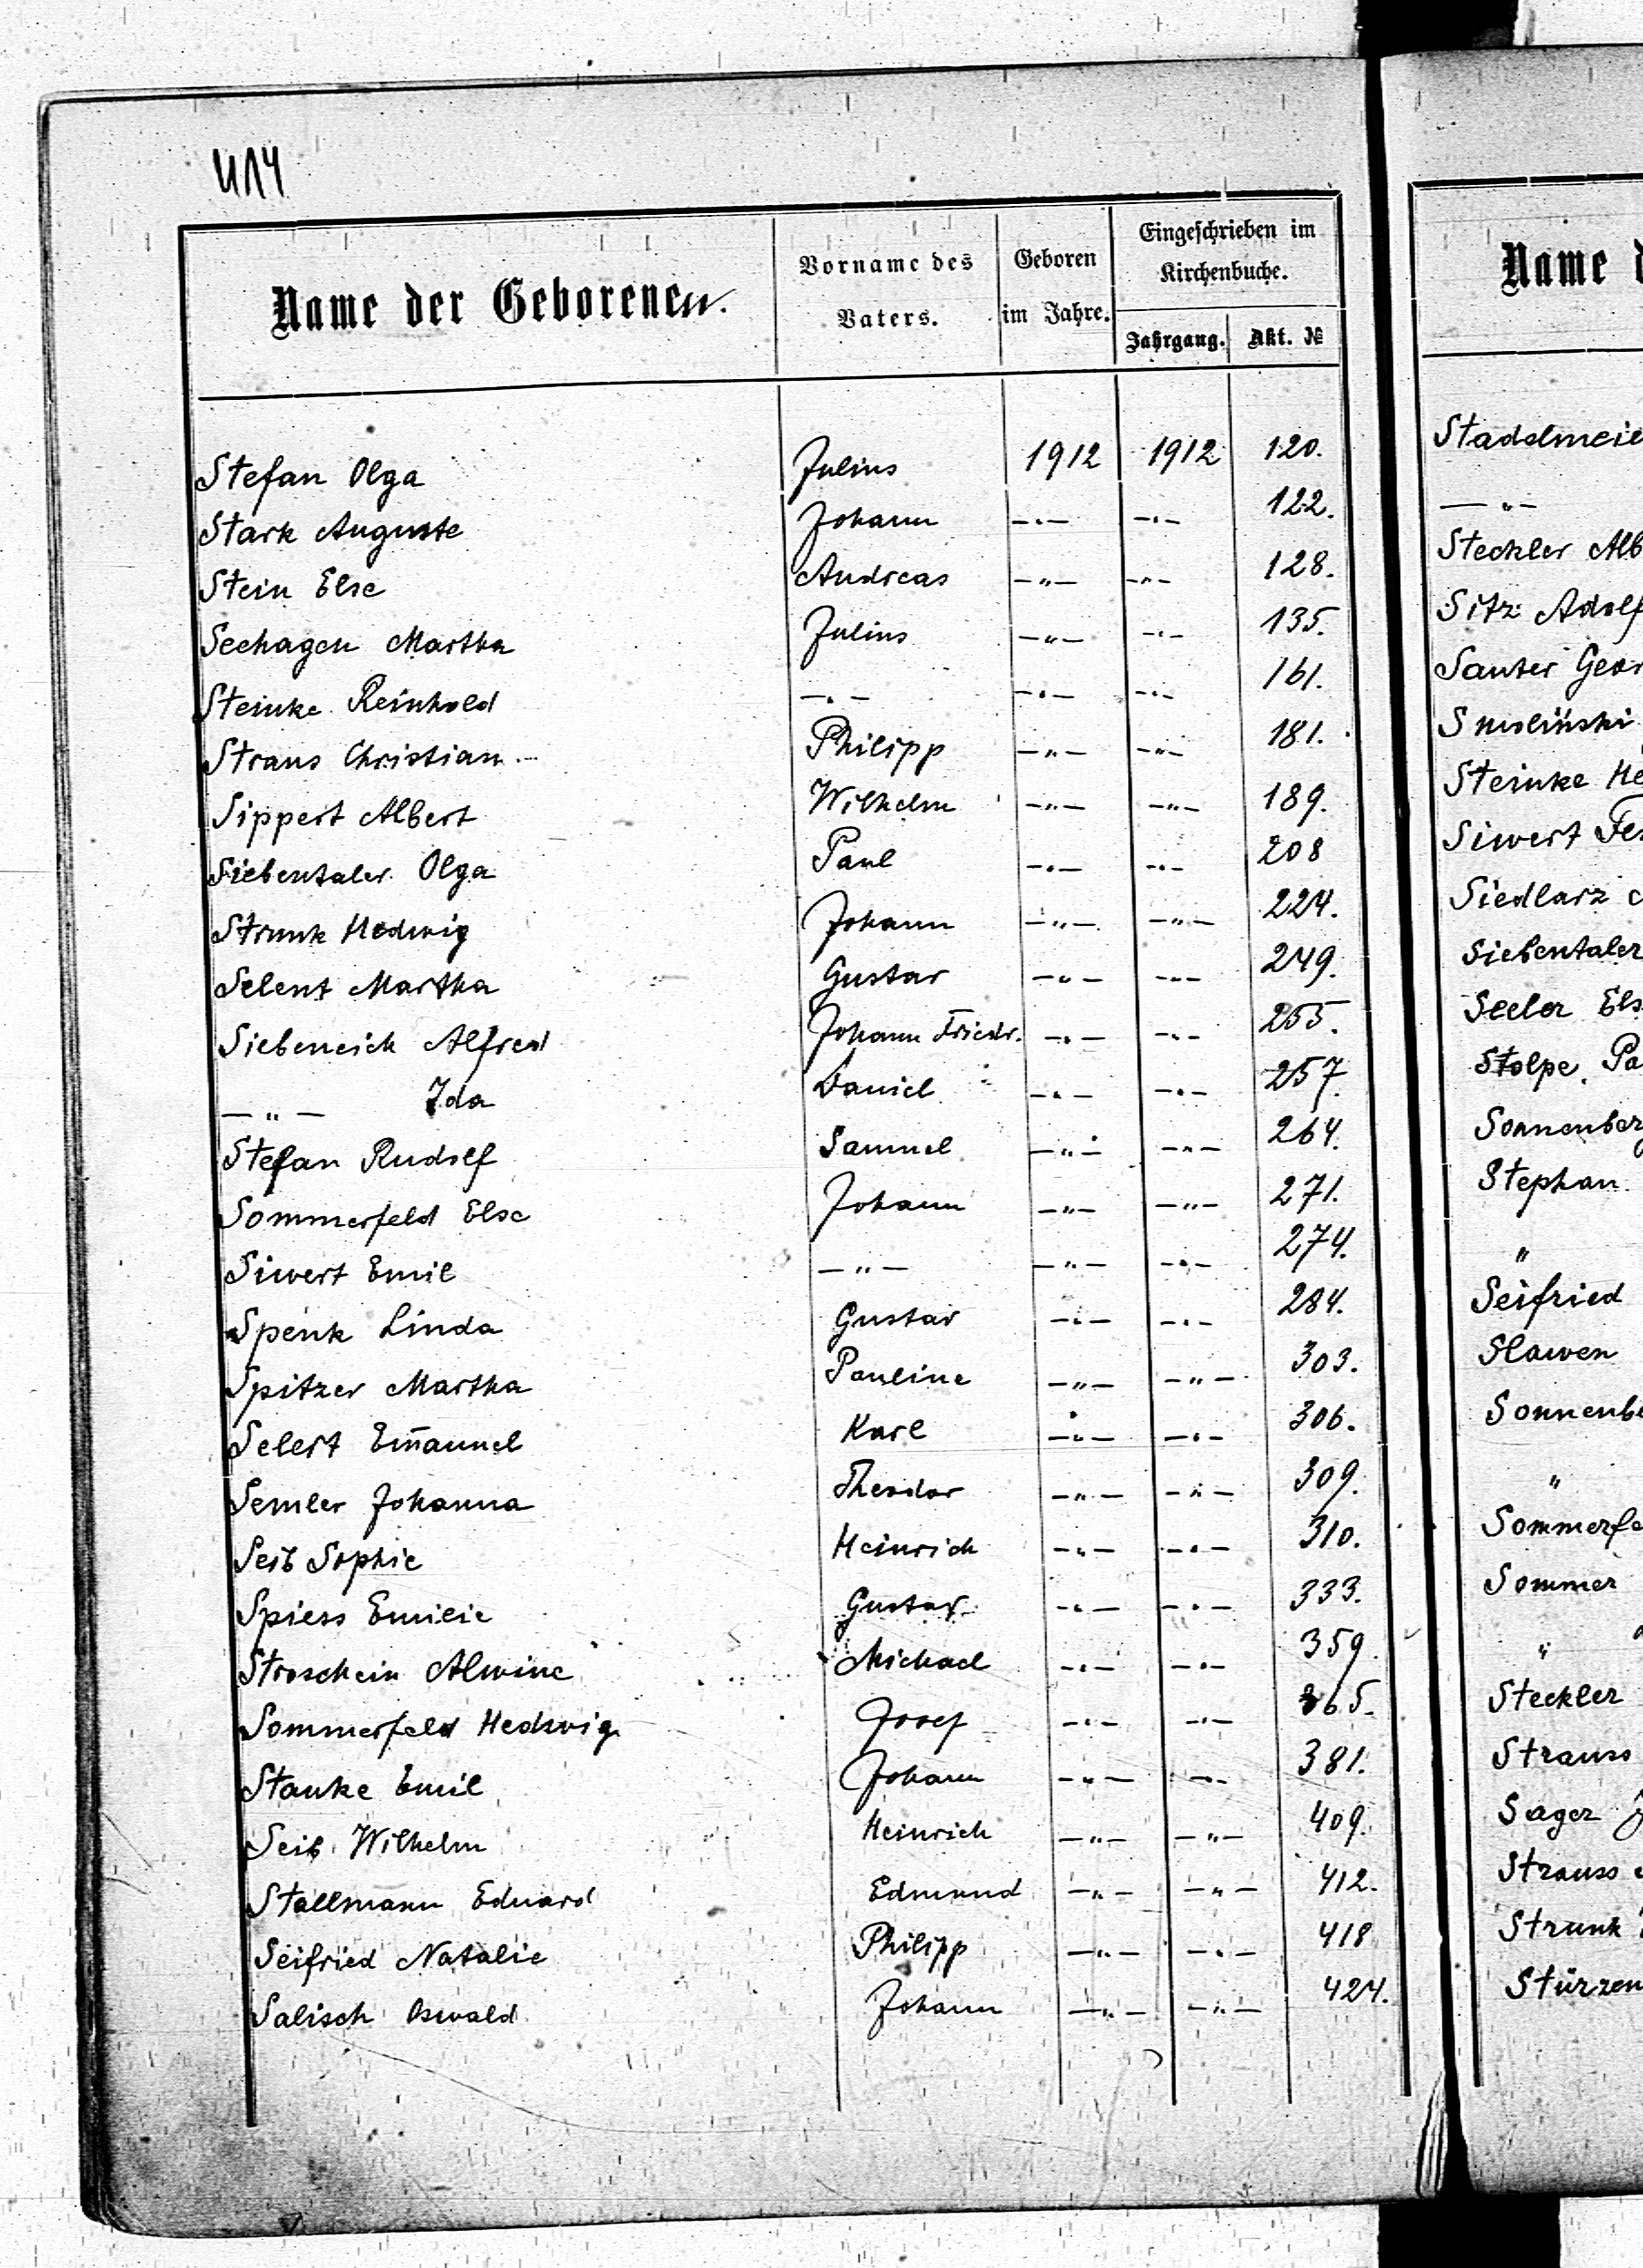 414
Name der Geborenen.
Vorname des Vaters.
Geboren im Jahre.
Eingeschrieben im Kirchenbuche.
Jahrgang. Akt. №
Stefan Olga Julius 1912 1912 120.
Stark Auguste Johann —„— —„— 122.
Stein Else Andreas —„— —„— 128.
Seehagen Martha Julius —„— —„— 135.
Steinke Reinhold —„— —„— —„— 161.
Straus Christian Philipp —„— —„— 181.
Sippert Albert Wilhelm —„— —„— 189.
Siebentaler Olga Paul —„— —„— 208
Strunk Hedwig Johann —„— —„— 224.
Selent Martha Gustav —„— —„— 249.
Siebeneich Alfred Johann Friedr. —„— —„— 255.
—„— Ida Daniel —„— —„— 257.
Stefan Rudolf Samuel —„— —„— 264.
Sommerfeld Else Johann —„— —„— 271.
Siwert Emil —„— —„— —„— 274.
Spenk Linda Gustav —„— —„— 284.
Spitzer Martha Pauline —„— —„— 303.
Selert Em̄anuel Karl —„— —„— 306.
Semler Johanna Theodor —„— —„— 309.
Seib Sophie Heinrich —„— —„— 310.
Spiess Emilie Gustav —„— —„— 333.
Stroschein Alwine Michael —„— —„— 359.
Sommerfeld Hedwig Josef —„— —„— 365.
Stanke Emil Johann —„— —„— 381.
Seib Wilhelm Heinrich —„— —„— 409.
Stallmann Eduard Edmund —„— —„— 412.
Seifried Natalie Philipp —„— —„— 418
Salisch Oswald Johann —„— —„— 424.
Name d
Stadelmeie
—„—
Steckler Alb
Sitz Adolf
Sauter Geor
Smoliński
Steinke He
Siwert Fer
Siedlarz
Siebentaler
Seeler Els
Stolpe Pa
Sonnenberg
Stephan
„
Seifried
Slawen
Sonnenbe
„
Sommerfe
Sommer
„
Steckler
Strauss
Sager J
Strauss
Strunk
Stürzen